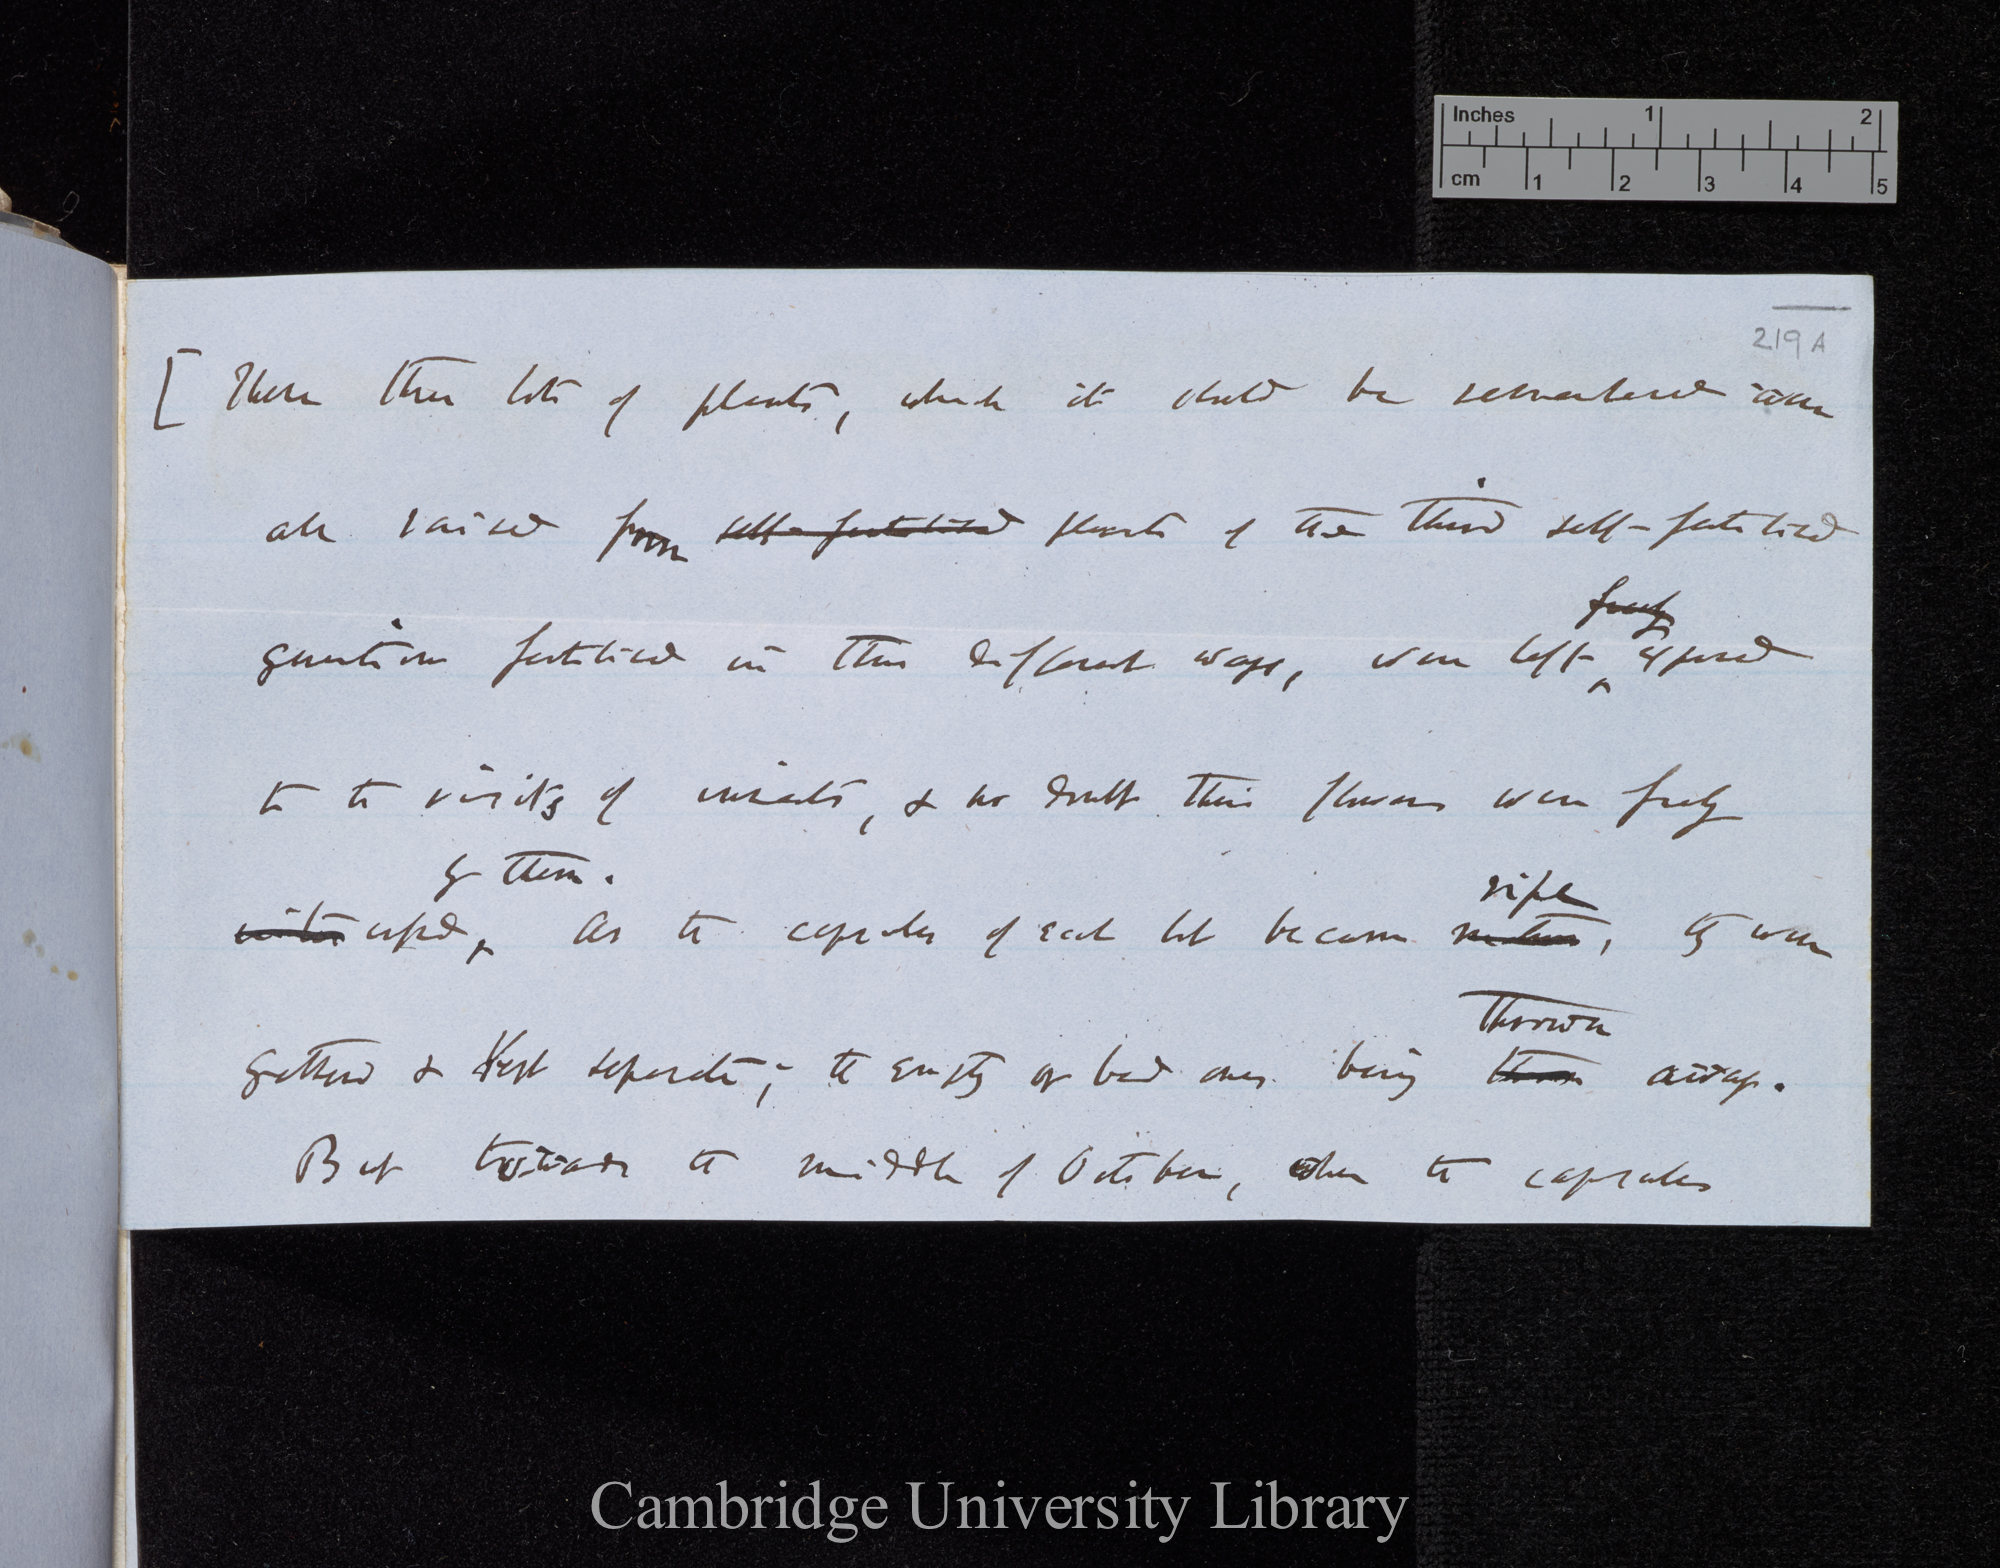 Inches 1 2
cm 1 2 3 4 5
219A
[ These three lots of plants, which it should be remembered were
all raised from ~~self-fertilised~~ plants of the third self-fertilised
~~freely~~
generation fertilised in three different ways, were left exposed
to the visits of insects, & no doubt their flowers were freely
by them.
~~inter~~crossed, As the capsules of each lot became ~~mature~~, they were
ripe
gathered & kept separate; the empty or bad ones being ~~thrown~~ away.
thrown
But towards the middle of October, when the capsules
Cambridge University Library